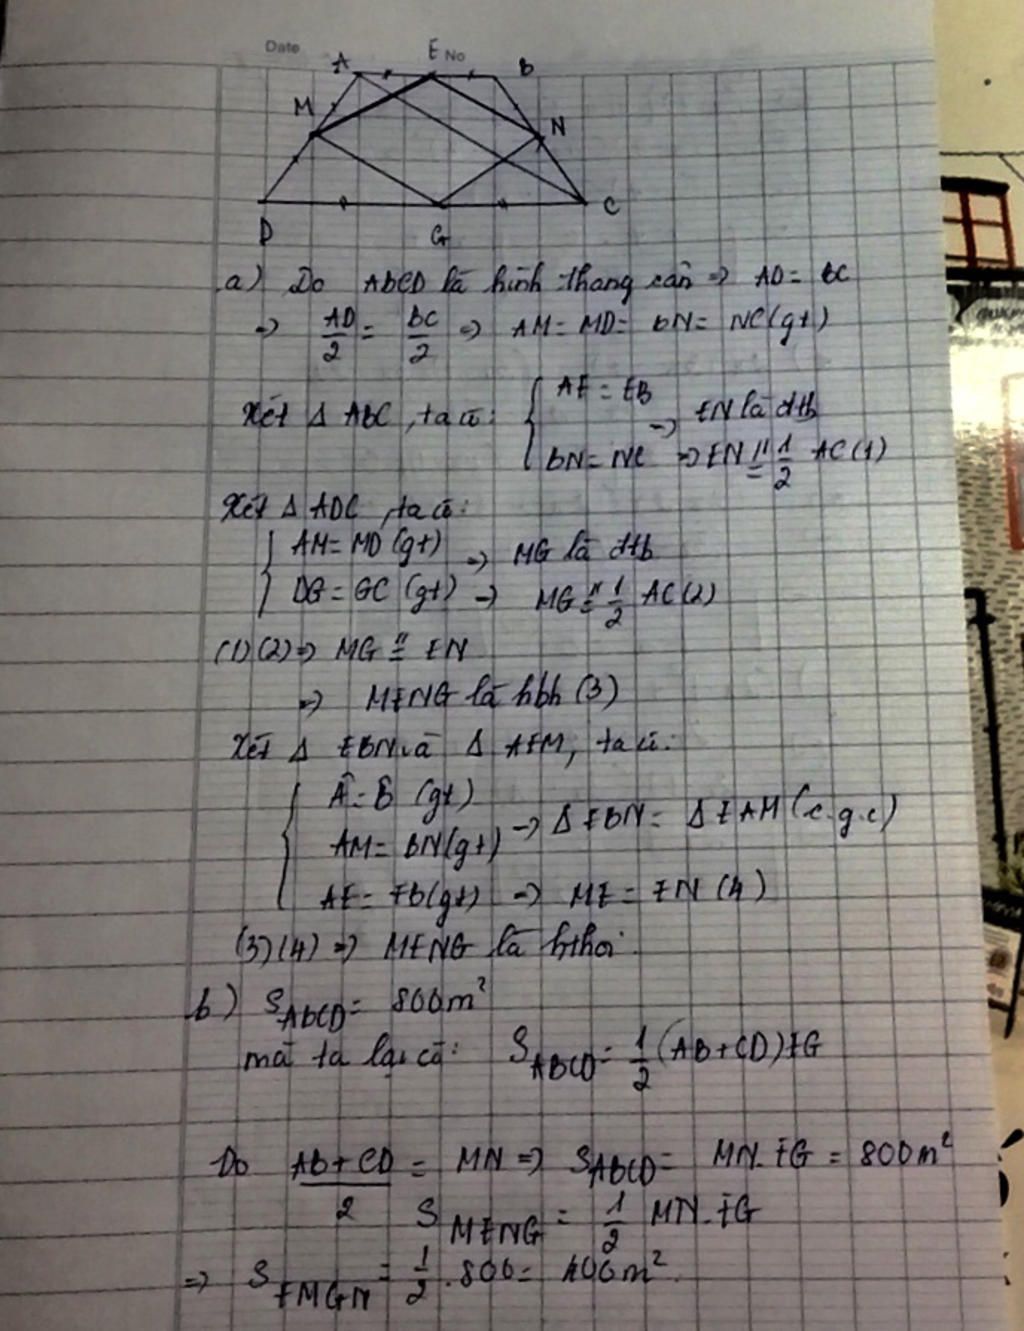 Date
No
A E B
M N
D G C
a) Do ABCD là hình thang cân => AD = BC
=> AD/2 = BC/2 => AM = MD = BN = NC (gt)
Xét Δ ABC, ta có: { AE = EB
BN = NC => EN là đtb
=> EN // = 1/2 AC (1)
Xét Δ ADC, ta có:
{ AM = MD (gt) => MG là đtb
DG = GC (gt) => MG // = 1/2 AC (2)
(1)(2) => MG // = EN
=> MENG là hbh (3)
Xét Δ EBN và Δ AEM, ta có:
{ Â = B̂ (gt)
AM = BN (gt) => Δ EBN = Δ EAM (c.g.c)
AE = EB (gt) => ME = EN (4)
(3)(4) => MENG là hthoi.
b) S ABCD = 800m²
mà ta lại có: S ABCD = 1/2 (AB + CD) EG
Do AB + CD / 2 = MN => S ABCD = MN. EG = 800m²
S MENG = 1/2 MN. EG
=> S EMGN = 1/2 . 800 = 400m².